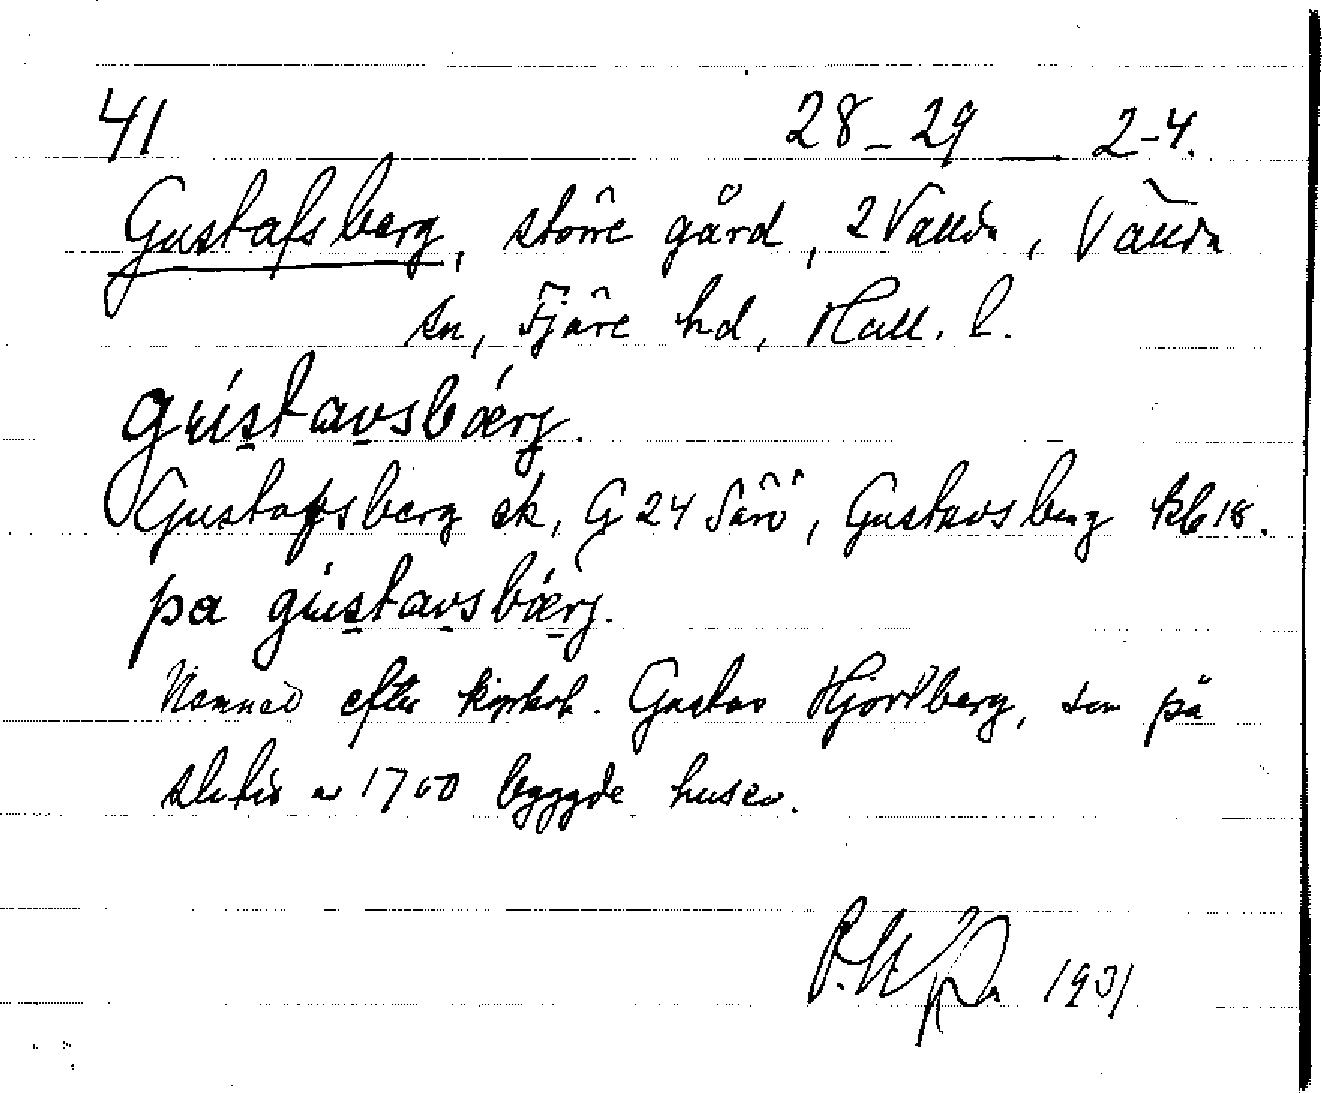 41 28-29 2-4.
Gustafsberg, större gård, 2 Vallda, Vallda
sn, Fjäre hd, Hall. l.
gústavsbǽrj.
Gustafsberg ek, G 24 Särö, Gustavsberg kb 18.
pa gústavsbǽrj.
Namned efter kyrkoh. Gustav Hjortberg, som på
slutet av 1700 byggde husen.
1931